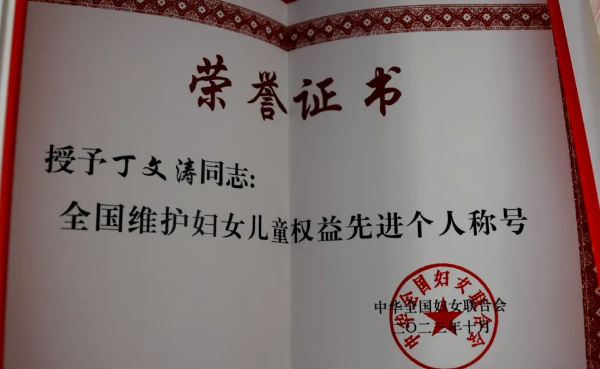 荣誉证书
授予丁文涛同志:
全国维护妇女儿童权益先进个人称号
中华全国妇女联合会
二〇二二年十月
中华全国妇女联合会